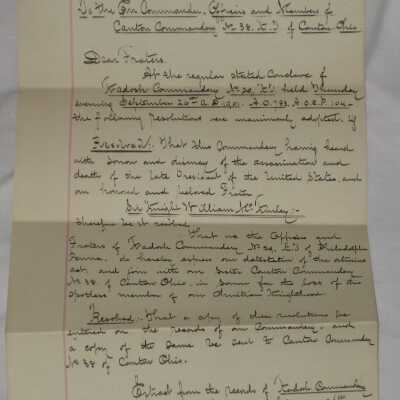 To the Em. Commander, Officers and Members of
Canton Commandery No 38, K.T. of Canton Ohio
Dear Fraters,
At the regular stated Conclave of
Kadosh Commandery No 29, K.T. held Thursday
evening September 20th A.D.
the following resolutions were unanimously adopted.
Resolved: That this Commandery having heard
with sorrow and dismay of the assassination and
death of the late President of the United States, and
our honored and beloved Frater
Sir Knight William McKinley:-
Therefore be it resolved,
That we the Officers and
Fraters of Kadosh Commandery No 29, K.T. of Philadelphia
Penna. do hereby express our detestation of the
act, and join with our Sister Canton Commandery
No 38 of Canton Ohio, in sorrow for the loss of this
spotless member of our Christian Knighthood.
Resolved: That a copy of these resolutions be
entered on the records of our Commandery, and
a copy of the same be sent to Canton Commandery
No 38 of Canton Ohio.
Extract from the records of Kadosh Commandery